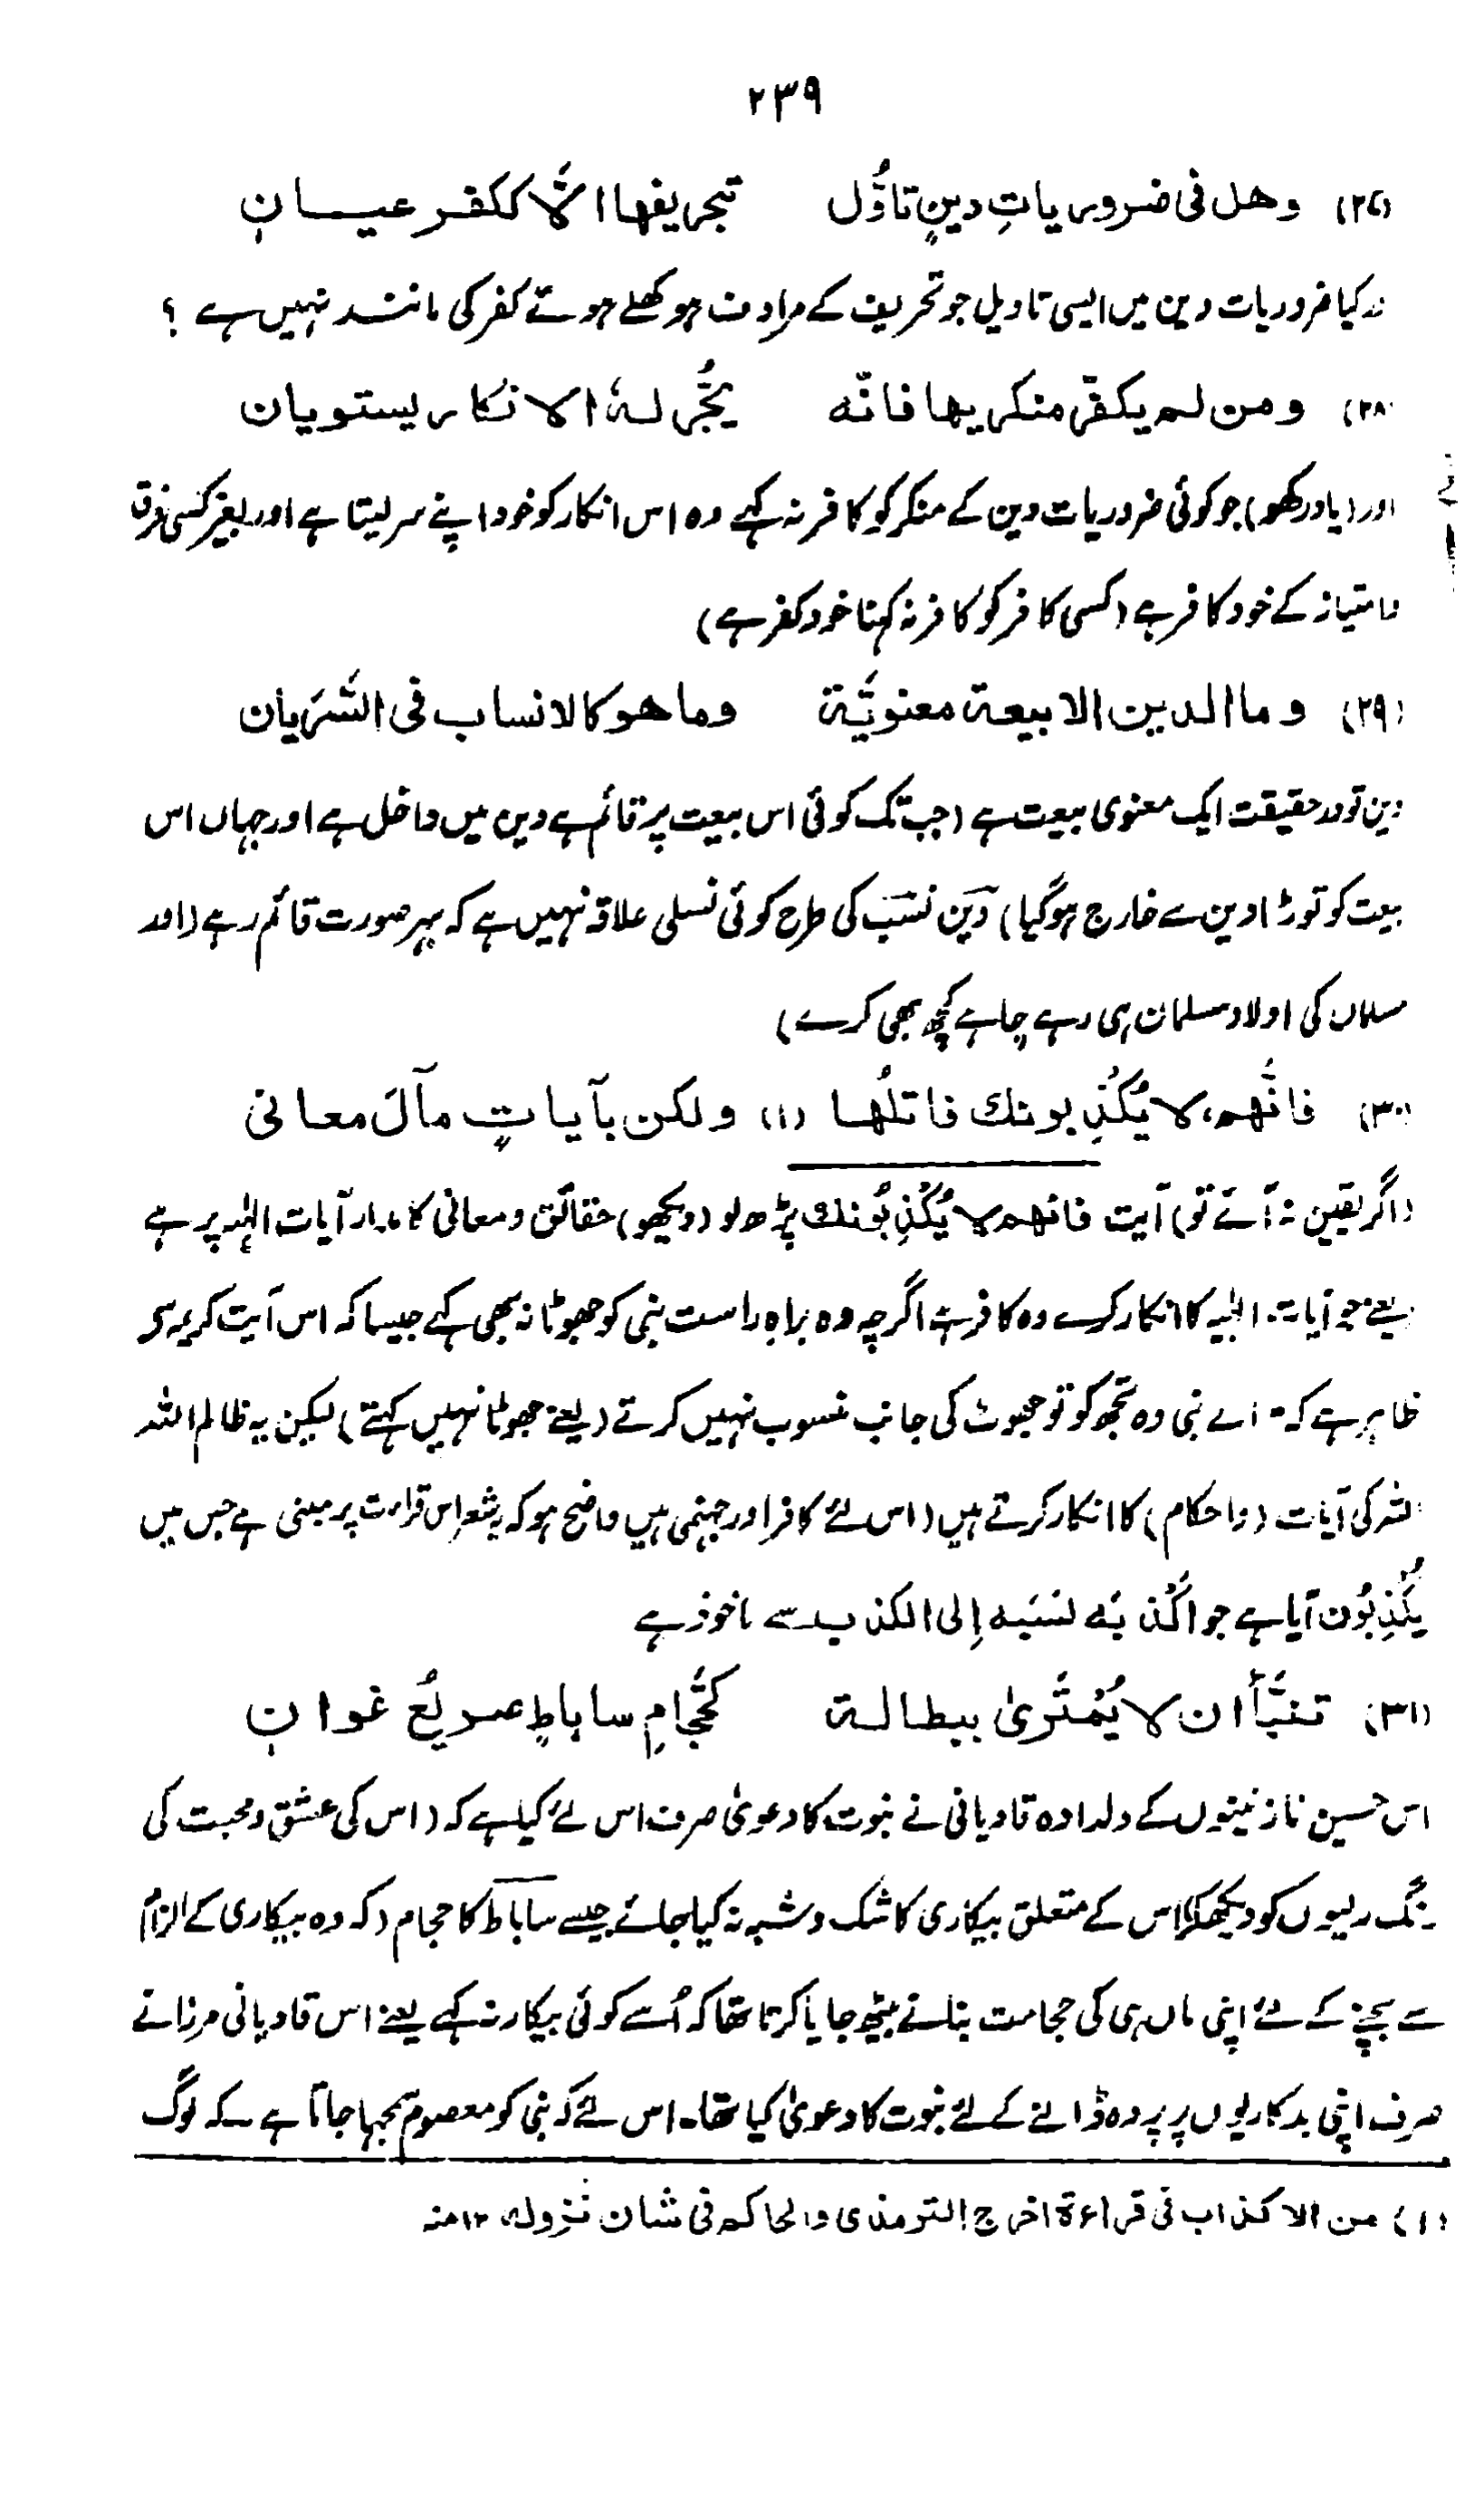 ۲۳۹
(۲۷) وهل فی ضروریاتِ دینٍ تاوُّل   بتحریفها الّا ککفر عیان
کیا ضروریات دین میں ایسی تاویل جو تحریف کے مرادف ہو کھلے ہوئے کفر کی مانند نہیں ہے ؟
(۲۸) ومن لم یکفّر منکریها فانّه   یجُرّ لهٗ الانکار یستویان
اور (یاد رکھو) جو کوئی ضروریات دین کے منکر کو کافر نہ کہے وہ اس انکار کو خود اپنے سر لیتا ہے اور بغیر کسی فرق
وامتیاز کے خود کافر ہے (کسی کافر کو کافر نہ کہنا خود کفر ہے)
(۲۹) وما الدین الا بیعة معنویَّة   وما هو کالانساب فی السَّرَیان
دین تو در حقیقت ایک معنوی بیعت ہے (جب تک کوئی اس بیعت پر قائم ہے دین میں داخل ہے اور جہاں اس
بیعت کو توڑا دین سے خارج ہوگیا) دین نسب کی طرح کوئی نسلی علاقہ نہیں ہے کہ بہر صورت قائم رہے (اور
مسلمان کی اولاد مسلمان ہی رہے چاہے کچھ بھی کرے)
(۳۰) فانَّهم لا یُکْذِبونك فاتلُها (۱) ولکن بآیاتٍ مآلَ معانی
(اگر یقین نہ آئے تو) آیت فانهم لا یُکْذِبُونك پڑھ لو (دیکھو) حقائق و معانی کا مدار آیات الٰہیہ پر ہے
یعنے جو آیات الٰہیہ کا انکار کرے وہ کافر ہے اگرچہ وہ براہِ راست نبی کو جھوٹا نہ بھی کہے جیسا کہ اس آیت کریمہ سے
ظاہر ہے کہ اے نبی وہ تجھ کو تو جھوٹ کی جانب منسوب نہیں کرتے (یعنے جھوٹا نہیں کہتے) لیکن یہ ظالم اللہ
کی آیات (واحکام) کا انکار کرتے ہیں (اس لئے کافر اور جہنمی ہیں واضح ہو کہ یہ شعر اس قراءت پر مبنی ہے جس میں
یُکْذِبُون آیا ہے جو اَکْذَبَه نَسَبَه اِلی الکذب سے ماخوذ ہے
(۳۱) تنبَّأ ان لا یُمْتَریٰ ببطالة   کحَجّامِ ساباطٍ صریعُ غوان
اس حسین نازنینوں کے دلدادہ قادیانی نے نبوت کا دعویٰ صرف اس لئے کیا ہے کہ (اس کی عشق و محبت کی
رنگ رلیوں کو دیکھکر) اس کے متعلق بیکاری کا شک و شبہ نہ کیا جائے جیسے ساباط کا حجام (کہ وہ بیکاری کے الزام
سے بچنے کے لئے اپنی ماں ہی کی حجامت بنانے بیٹھ جایا کرتا تھا کہ اُسے کوئی بیکار نہ کہے یعنے اس قادیانی مرزا نے
صرف اپنی بدکاریوں پر پردہ ڈالنے کے لئے نبوت کا دعویٰ کیا تھا۔ اس لئے کہ نبی کو معصوم سمجھا جاتا ہے کہ لوگ
(۱) من الاکذاب فی قراءة اخرج الترمذی والحاکم فی شان نزوله ۱۲ منہ